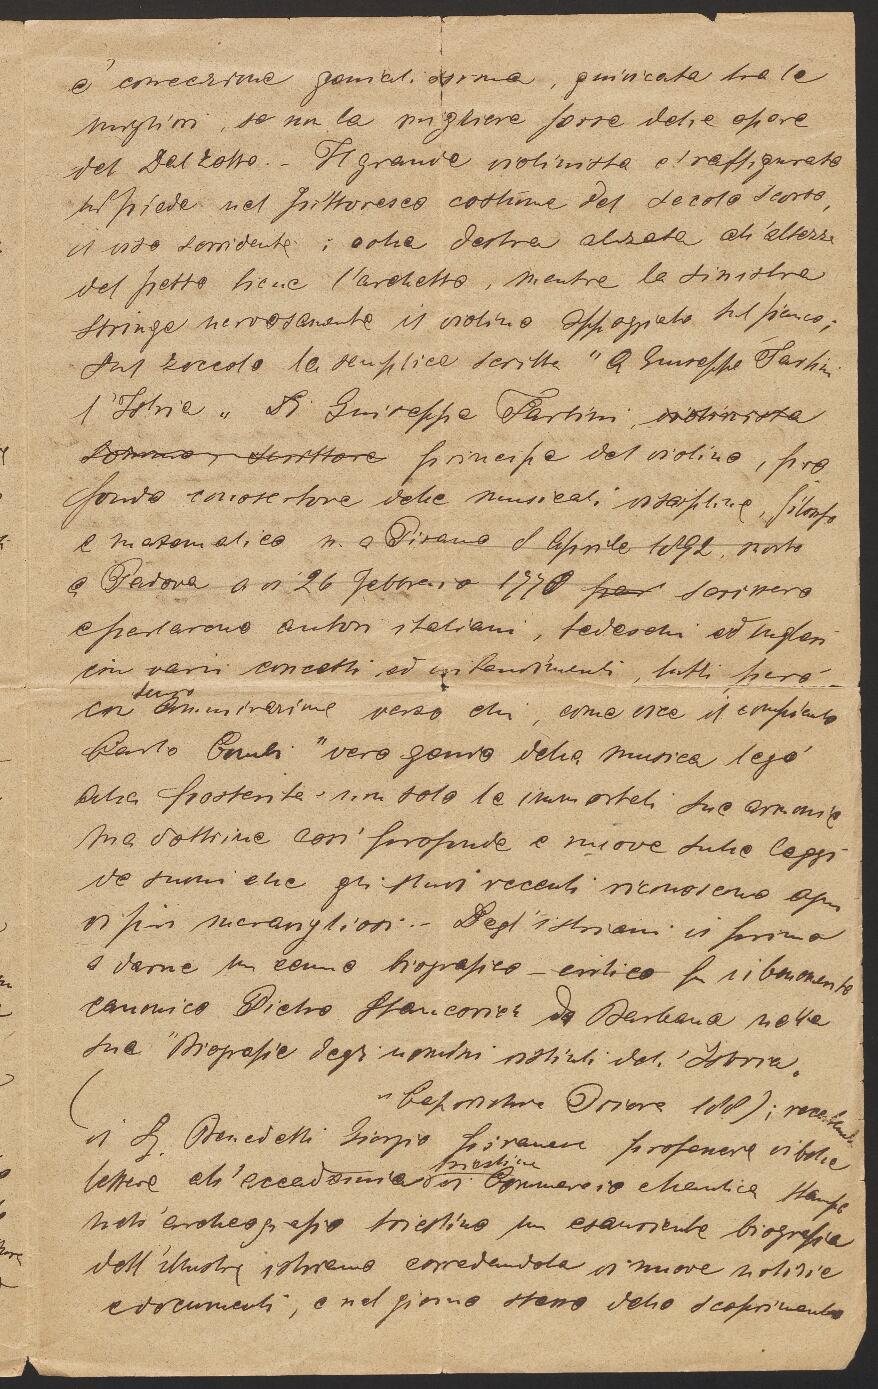 e' concezione genialissima, giudicata tra le
migliori, se non la migliore forse delle opere
del Dal Zotto. - Il grande violinista e' raffigurato
in piedi nel pittoresco costume del secolo scorso,
il viso sorridente; colla destra alzata all'altezza
del petto tiene l'archetto, mentre la sinistra
stringe nervosamente il violino appoggiato sul fianco;
sul zoccolo la semplice scritta "A Giuseppe Tartini
l'Istria„ Di Giuseppe Tartini, violinista
sommo, scrittore principe del violino, pro
fondo conoscitore delle musicali discipline, filosofo
e matematico n. a Pirano 8 Aprile 1692, morto
a Padova a di 26 Febbraio 1770 scrissero
e parlarono autori italiani, tedeschi ed inglesi
con varii concetti ed intendimenti, tutti però
con somma ammirazione verso chi, come dice il compianto
Carlo Combi "vero genio della musica legò
alla posterità non solo le immortali sue armonie
ma dottrine così profonde e nuove sulle leggi
de suoni che gli studi recenti riconoscono ognor
di più meravigliosi. - Degl'istriani il primo
a darne un cenno biografico - critico fu il benemerito
canonico Pietro Stancovich da Barbana nella
sua "Biografia degli uomini distinti dell'Istria„
( Capodistria Priora 188 ); recentemente
il S. Benedetti Giorgio piranese professore di belle
lettere all'accademia triestina di Commercio e Nautica stampò
nell'archeografo triestino un esauriente biografia
dell'illustre istriano corredandola di nuove notizie
e documenti, e nel giorno stesso dello scoprimento